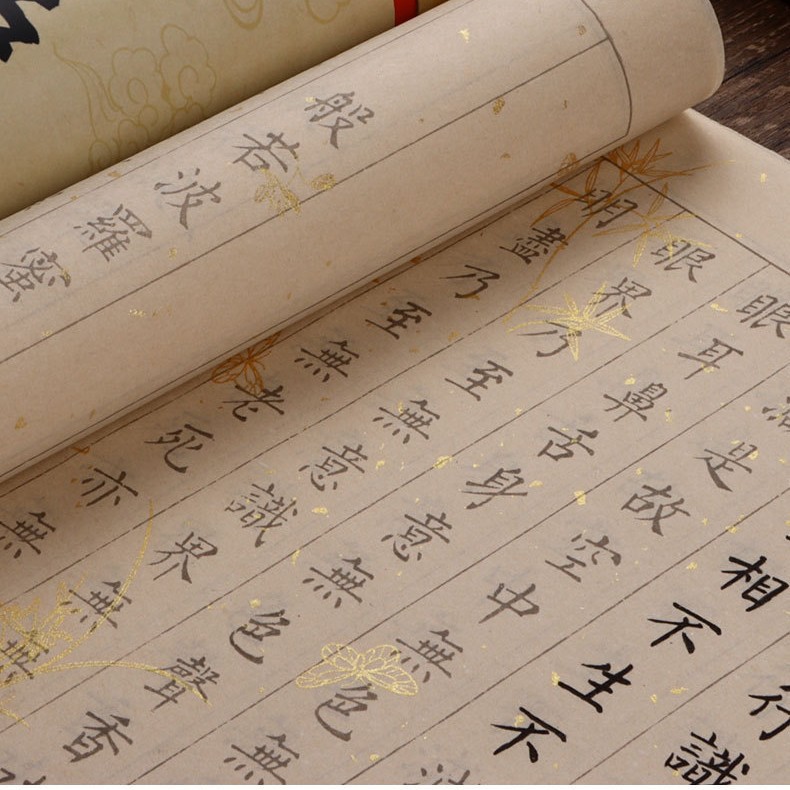 行識
相不生不
是故空中無色無
眼耳鼻舌身意無色聲香
眼界乃至無意識界無無
明盡乃至無老死亦無
般若波羅蜜